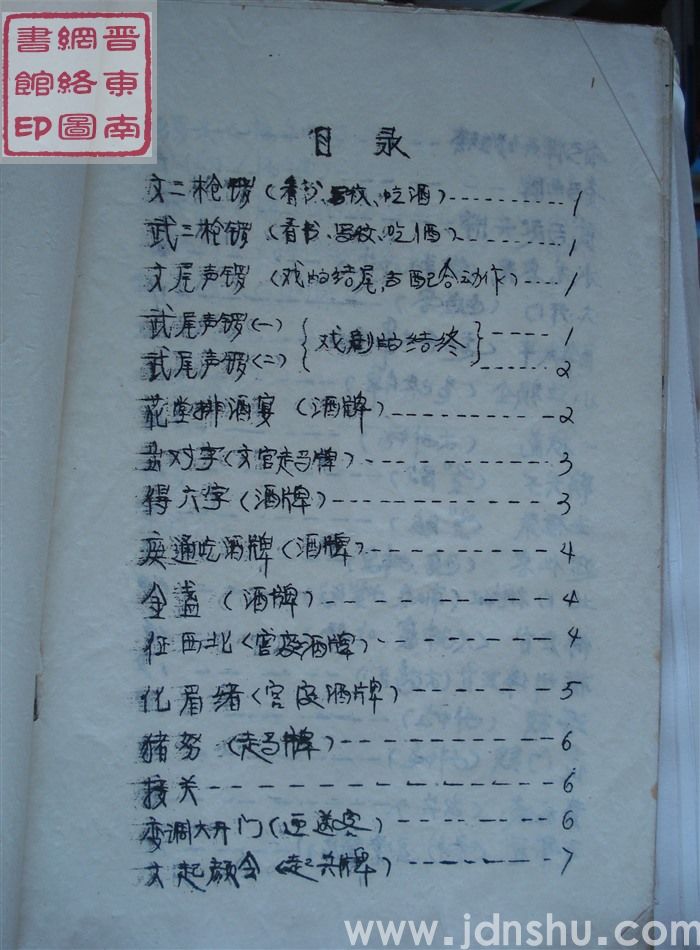 晋东南
網絡圖
書館印
1
目录
文二枪锣（看书、写校、吃酒）---------1
武二枪锣（看书、写校、吃酒）---------1
文尾声锣（戏的结尾,吉配合动作）----1
武尾声锣（一）
武尾声锣（二）
{戏剧的结终}
-----1
-----2
花堂排酒宴（酒牌）------------2
对字（文官走马牌）------------3
得六字（酒牌）---------------3
通吃酒牌（酒牌）-------------4
金盏（酒牌）----------------4
征西北（宫廷酒牌）-----------4
化眉绪（宫廷酒牌）-----------5
猪努（走马牌）--------------6
接关---------------------6
变调大开门（迎送客）---------6
文起颜会（起共牌）----------7
www.jdnshu.com